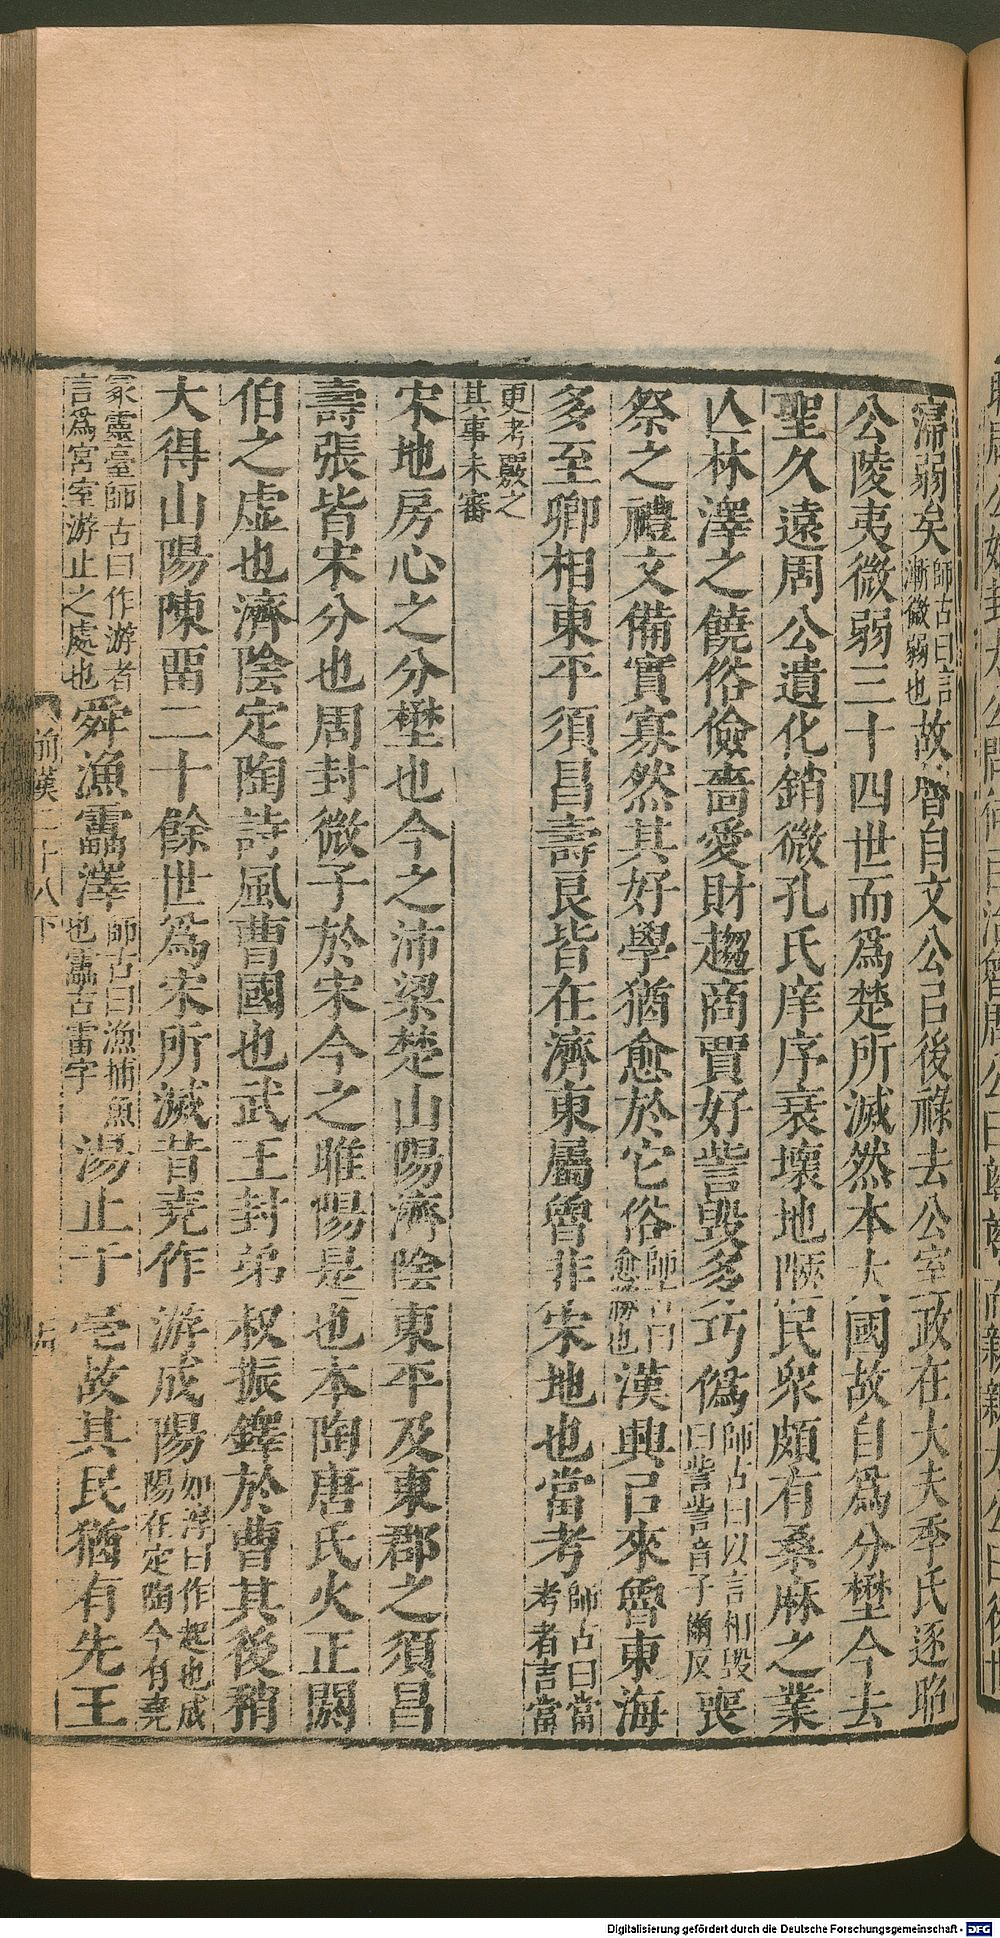 寖弱矣師古曰言漸微弱也故魯自文公㠯後祿去公室政在大夫季氏逐昭
公陵夷微弱三十四世而爲楚所滅然本大國故自爲分壄今去
聖久遠周公遺化銷微孔氏庠序衰壞地陿民衆頗有桑麻之業
亾林澤之饒俗儉嗇愛財趨商賈好訾毀多巧僞師古曰以言相毀曰訾訾音子爾反喪
祭之禮文備實寡然其好學猶愈於它俗師古曰愈勝也漢興㠯來魯東海
多至卿相東平須昌壽良皆在濟東屬魯非宋地也當考師古曰當考者言當
更考覈之其事未審
宋地房心之分壄也今之沛梁楚山陽濟陰東平及東郡之須昌
壽張皆宋分也周封微子於宋今之睢陽是也本陶唐氏火正閼
伯之虛也濟陰定陶詩風曹國也武王封弟叔振鐸於曹其後稍
大得山陽陳畱二十餘世爲宋所滅昔堯作游成陽如淳曰作起也成陽在定陶今有堯
冢靈臺師古曰作游者言爲宮室游止之處也舜漁靁澤師古曰漁捕魚也靁古雷字湯止于亳故其民猶有先王
前漢二十八下
Digitalisierung gefördert durch die Deutsche Forschungsgemeinschaft - DFG